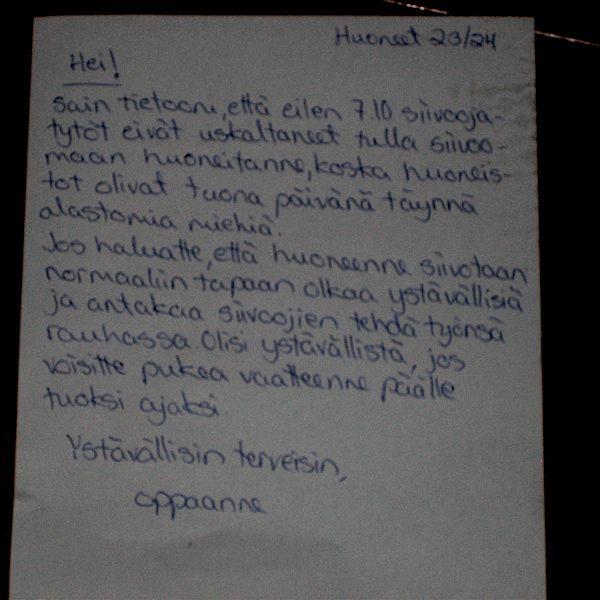 Huoneet 23/24
Hei!
Sain tietooni, että eilen 7.10 siivooja-
tytöt eivät uskaltaneet tulla siivoo-
maan huoneitanne, koska huoneis-
tot olivat tuona päivänä täynnä
alastomia miehiä.
Jos haluatte, että huoneenne siivotaan
normaaliin tapaan olkaa ystävällisiä
ja antakaa siivoojien tehdä työnsä
rauhassa. Olisi ystävällistä, jos
voisitte pukea vaatteenne päälle
tuoksi ajaksi.
Ystävällisin terveisin,
oppaanne